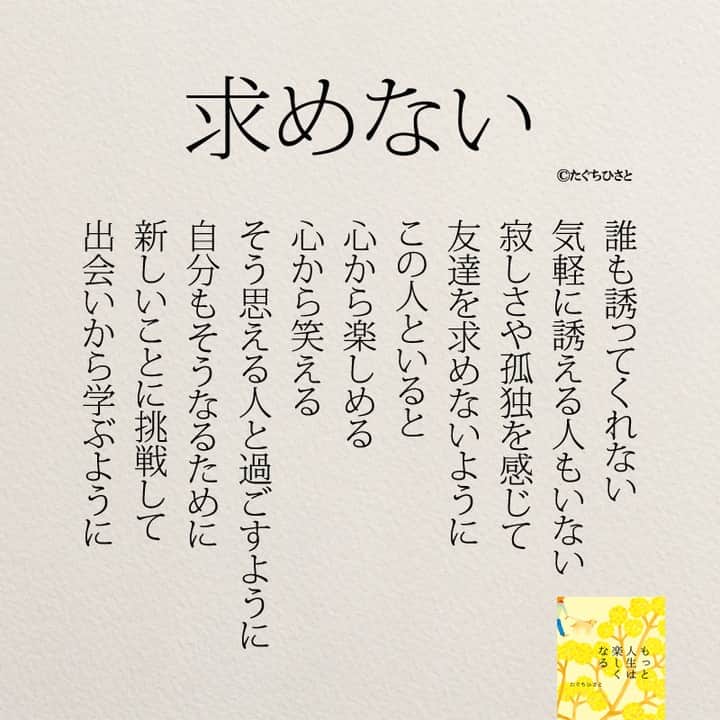 求めない
©たぐちひさと
誰も誘ってくれない
気軽に誘える人もいない
寂しさや孤独を感じて
友達を求めないように
この人といると
心から楽しめる
心から笑える
そう思える人と過ごすように
自分もそうなるために
新しいことに挑戦して
出会いから学ぶように
もっと
人生は
楽しく
なる
たぐちひさと